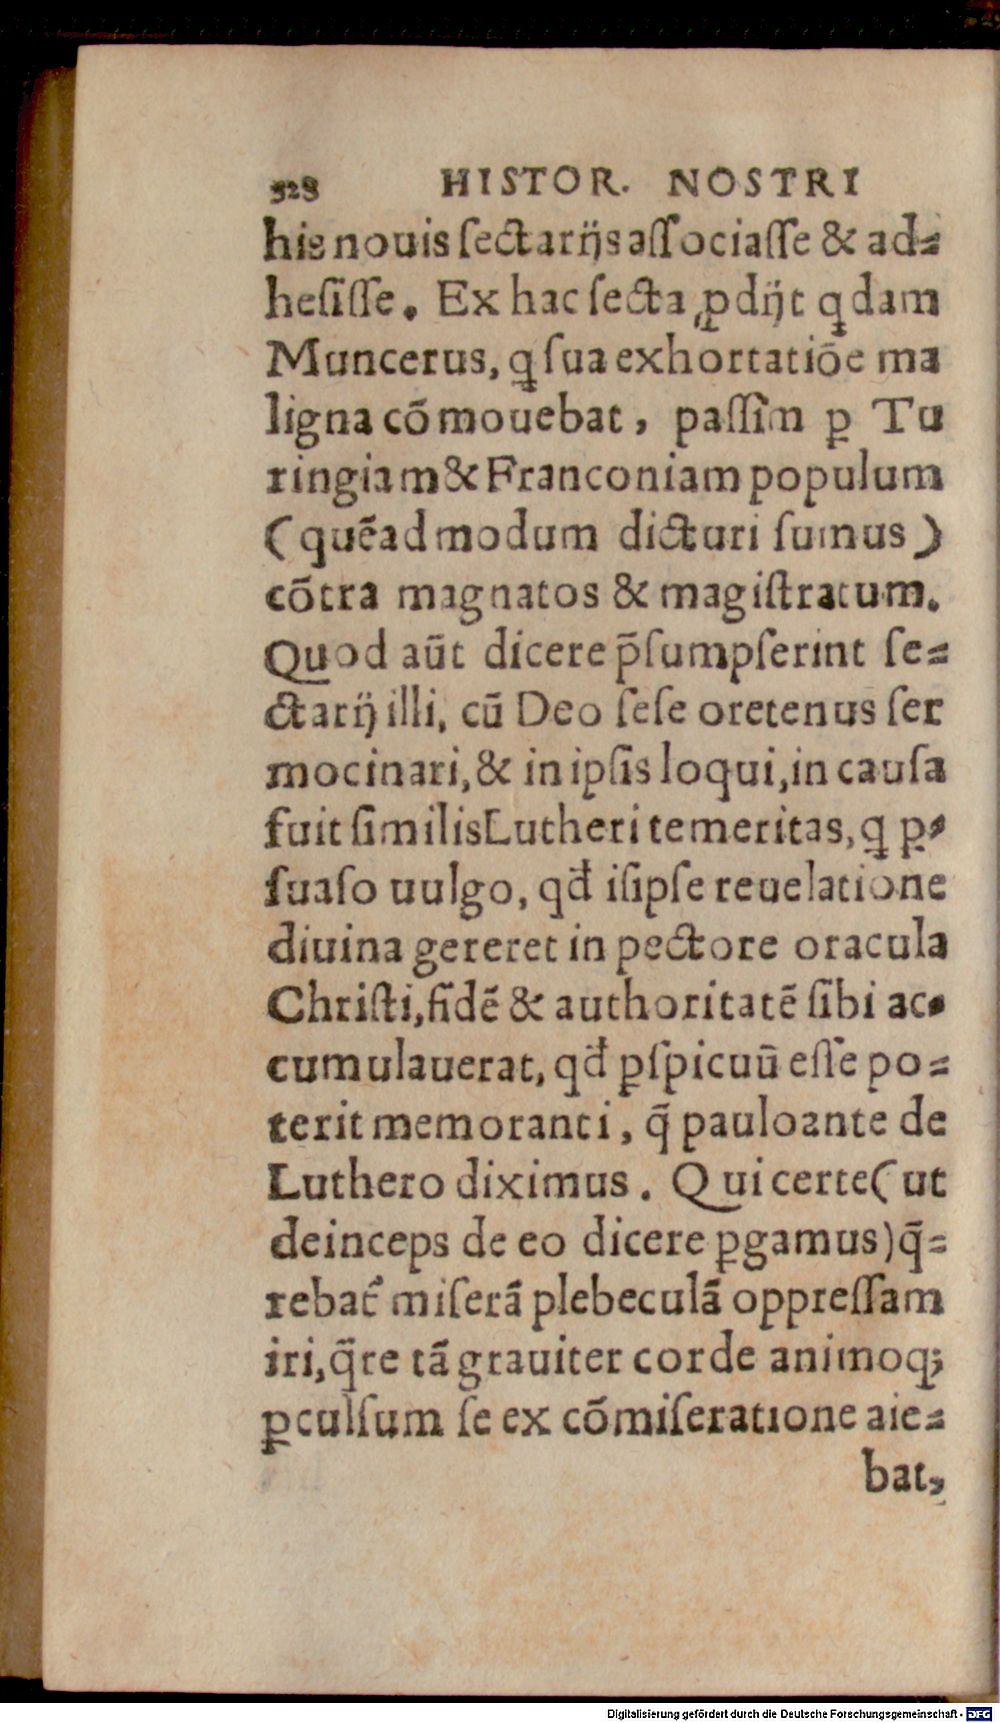 328 HISTOR. NOSTRI
his nouis sectarijs associasse & ad=
hesisse. Ex hac secta ꝓdijt ꝗdam
Muncerus, ꝗ sua exhortatiōe ma
ligna cōmouebat, passim ꝑ Tu
ringiam & Franconiam populum
(quēadmodum dicturi sumus)
cōtra magnatos & magistratum.
Quod aūt dicere p̄sumpserint se=
ctarij illi, cū Deo sese oretenus ser
mocinari, & in ipsis loqui, in causa
fuit similis Lutheri temeritas, ꝗ ꝑ=
suaso uulgo, qđ isipse reuelatione
diuina gereret in pectore oracula
Christi, fidē & authoritatē sibi ac=
cumulauerat, qđ ꝑspicuū esse po=
terit memoranti, q̄ pauloante de
Luthero diximus. Qui certe (ut
deinceps de eo dicere ꝑgamus) q̄=
rebat᷑ miserā plebeculā oppressam
iri, q̄re tā grauiter corde animoq;
ꝑculsum se ex cōmiseratione aie=
bat,
Digitalisierung gefördert durch die Deutsche Forschungsgemeinschaft - DFG